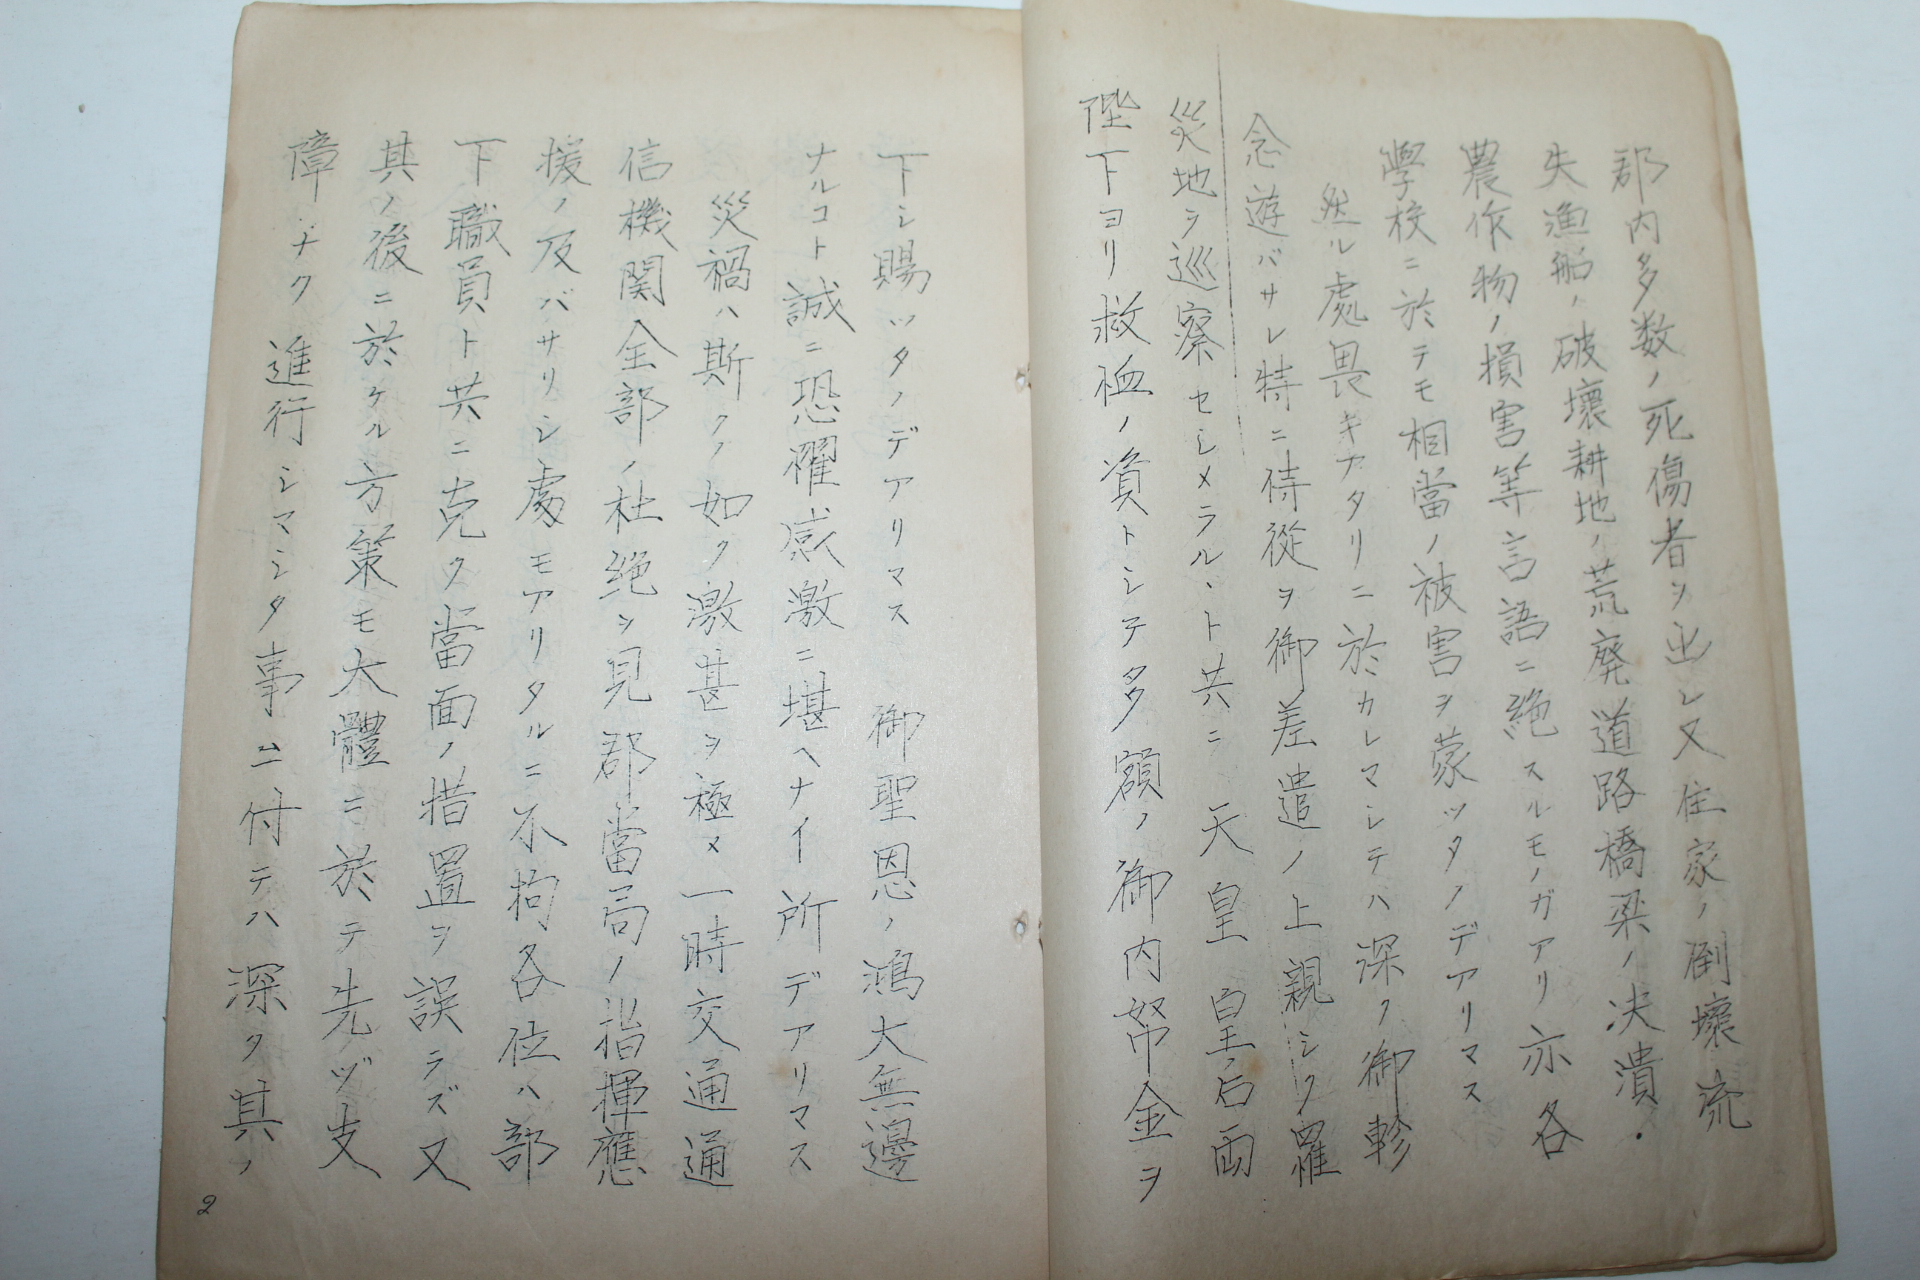 郡内多数ノ死傷者ヲ出シ又住家ノ倒壊流
失漁船ノ破壊耕地ノ荒廃道路橋梁ノ决潰・
農作物ノ損害等言語ニ絶スルモノガアリ亦各
學校ニ於テモ相當ノ被害ヲ蒙ツタノデアリマス
然ル處畏キアタリニ於カレマシテハ深ク御軫
念遊バサレ特ニ侍從ヲ御差遣ノ上親シク罹
災地ヲ巡察セシメラルヽト共ニ天皇皇后両
陛下ヨリ救恤ノ資トシテ多額ノ御内帑金ヲ
下シ賜ツタノデアリマス 御聖恩ノ鴻大無邊
ナルコト誠ニ恐懼感激ニ堪ヘナイ所デアリマス
災禍ハ斯クノ如ク激甚ヲ極メ一時交通通
信機関全部ノ杜絶ヲ見郡當局ノ指揮應
援ノ及バサリシ處モアリタルニ不拘各位ハ部
下職員ト共ニ克ク當面ノ措置ヲ誤ラズ又
其ノ後ニ於ケル方策モ大體ニ於テ先ヅ支
障ナク進行シマシタ事ニ付テハ深ク其ノ
2